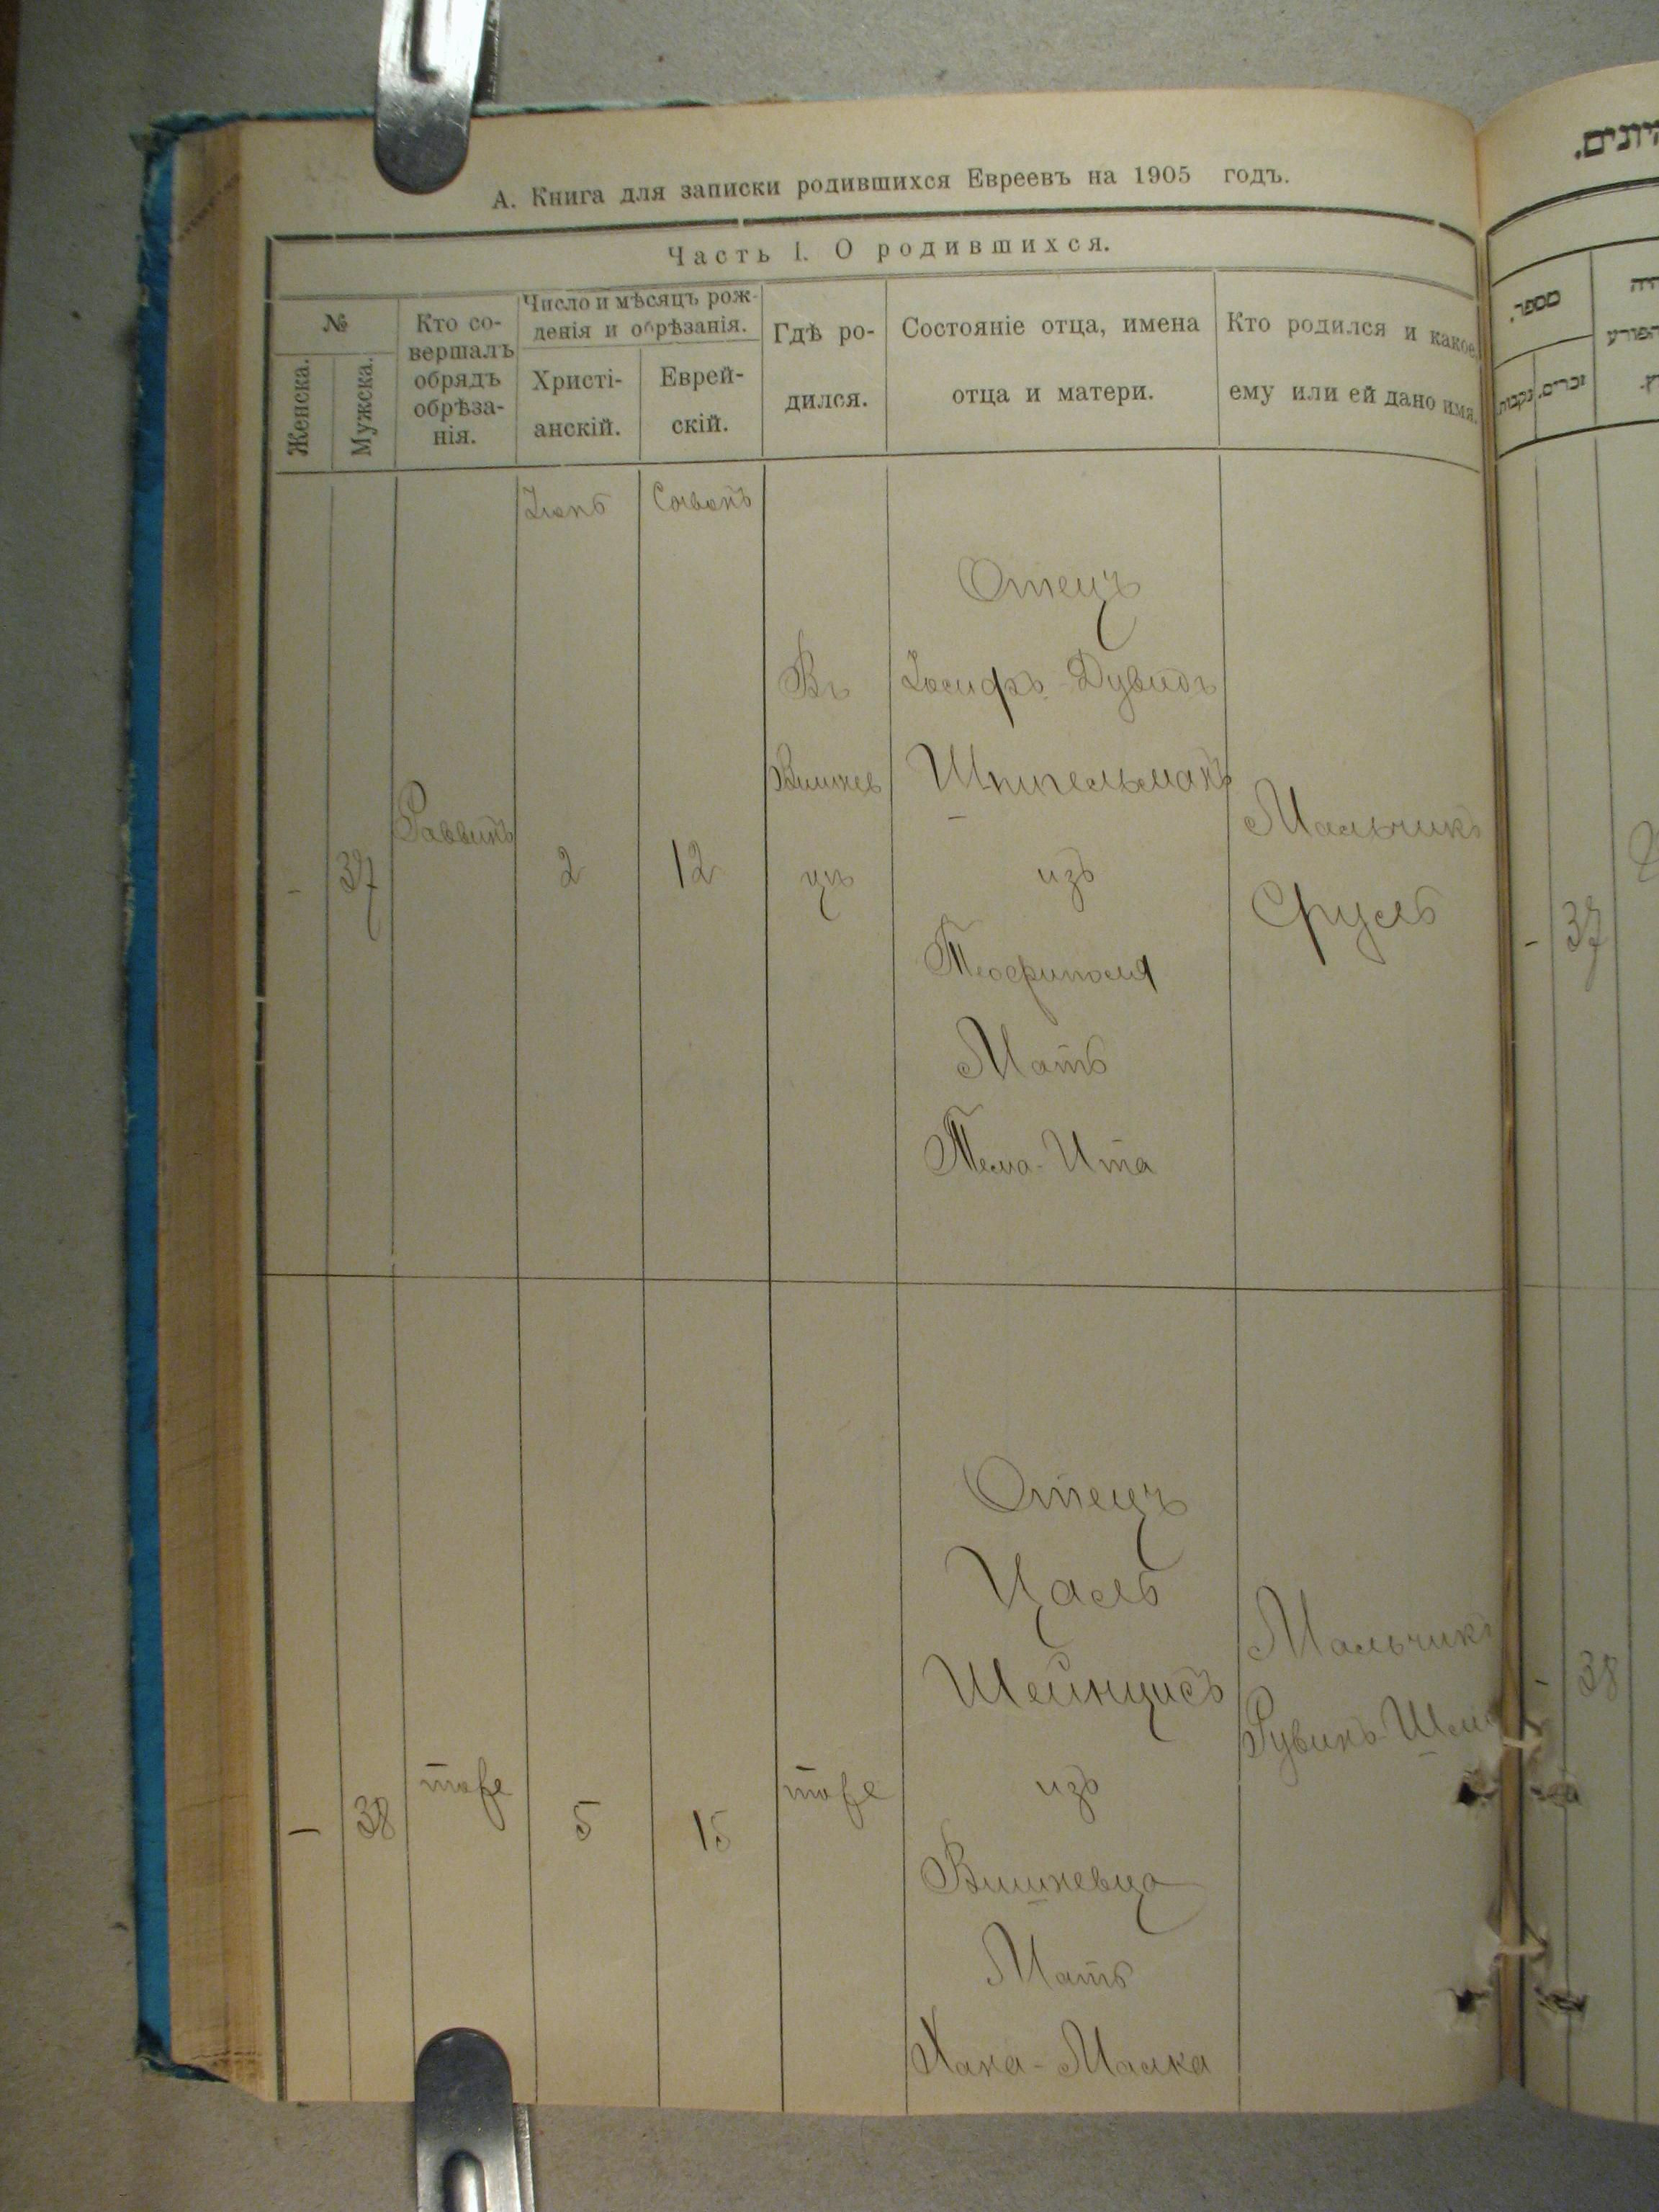 А. Книга для записки родившихся Евреевъ на 1905 годъ.
Часть I. О родившихся.
№
Женска.
Мужска.
Кто со-
вершалъ
обрядъ
обрѣза-
нія.
Число и мѣсяцъ рож-
денія и обрѣзанія.
Христі-
анскій.
Еврей-
скій.
Гдѣ ро-
дился.
Состояніе отца, имена
отца и матери.
Кто родился и какое
ему или ей дано имя.
Сивонъ
-
37
Раввинъ
2
12
Въ
Вишнев
цѣ
Отецъ
Іосифъ-Дувидъ
Шпигельманъ
изъ
Теофиполя
Мать
Тема-Ита
Мальчикъ
Сруль
-
38
тоже
5
15
тоже
Отецъ
Цаль
Шейнцисъ
изъ
Вишневца
Мать
Хана-Малка
Мальчикъ
Рувинъ
מספר.
זכרים.
נקבות.
-
37
-
38